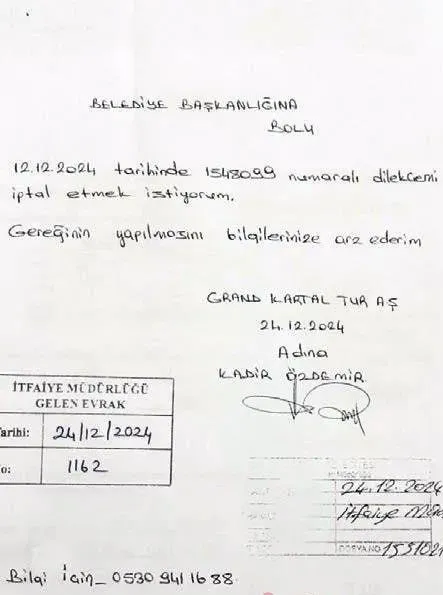 BELEDİYE BAŞKANLIĞINA
BOLU
12.12.2024 tarihinde 1548099 numaralı dilekçemi
iptal etmek istiyorum.
Gereğinin yapılmasını bilgilerinize arz ederim
GRAND KARTAL TUR AŞ
24.12.2024
Adına
KADİR ÖZDEMİR
İTFAİYE MÜDÜRLÜĞÜ
GELEN EVRAK
arihi: 24/12/2024
o: 1162
24.12.2024
İtfaiye Müd
DOSYA NO 1551021
Bilgi İçin_ 0530 941 16 88